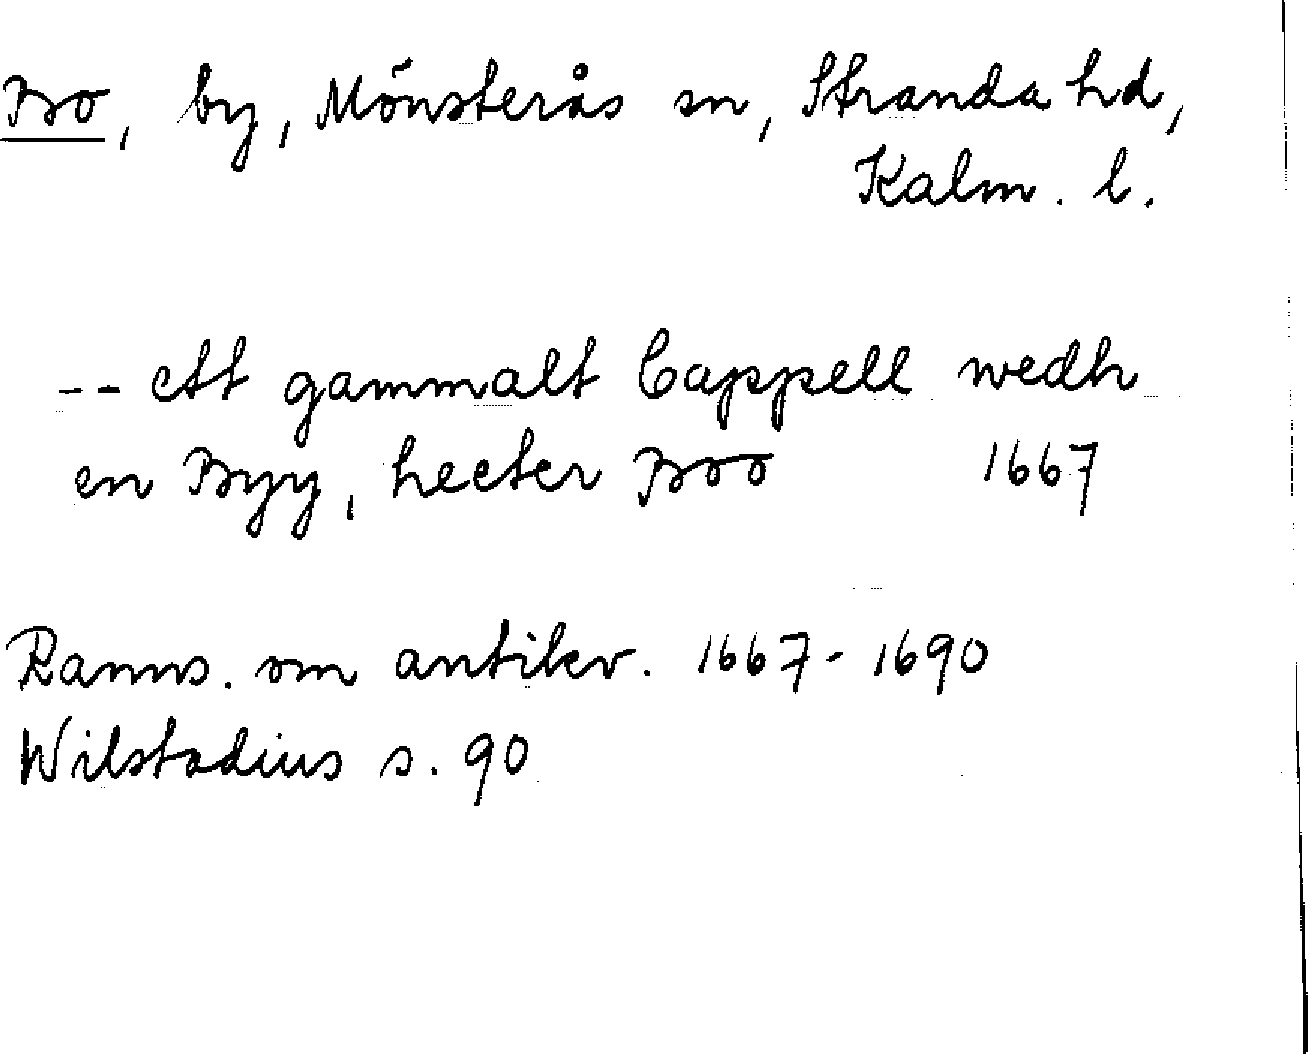 Bo, by, Mönsterås sn, Stranda hd,
Kalm. l.
-- ett gammalt Cappell wedh
en Byy, heeter Boo 1667
Ranns. om antikv. 1667-1690
Wilstadius s. 90